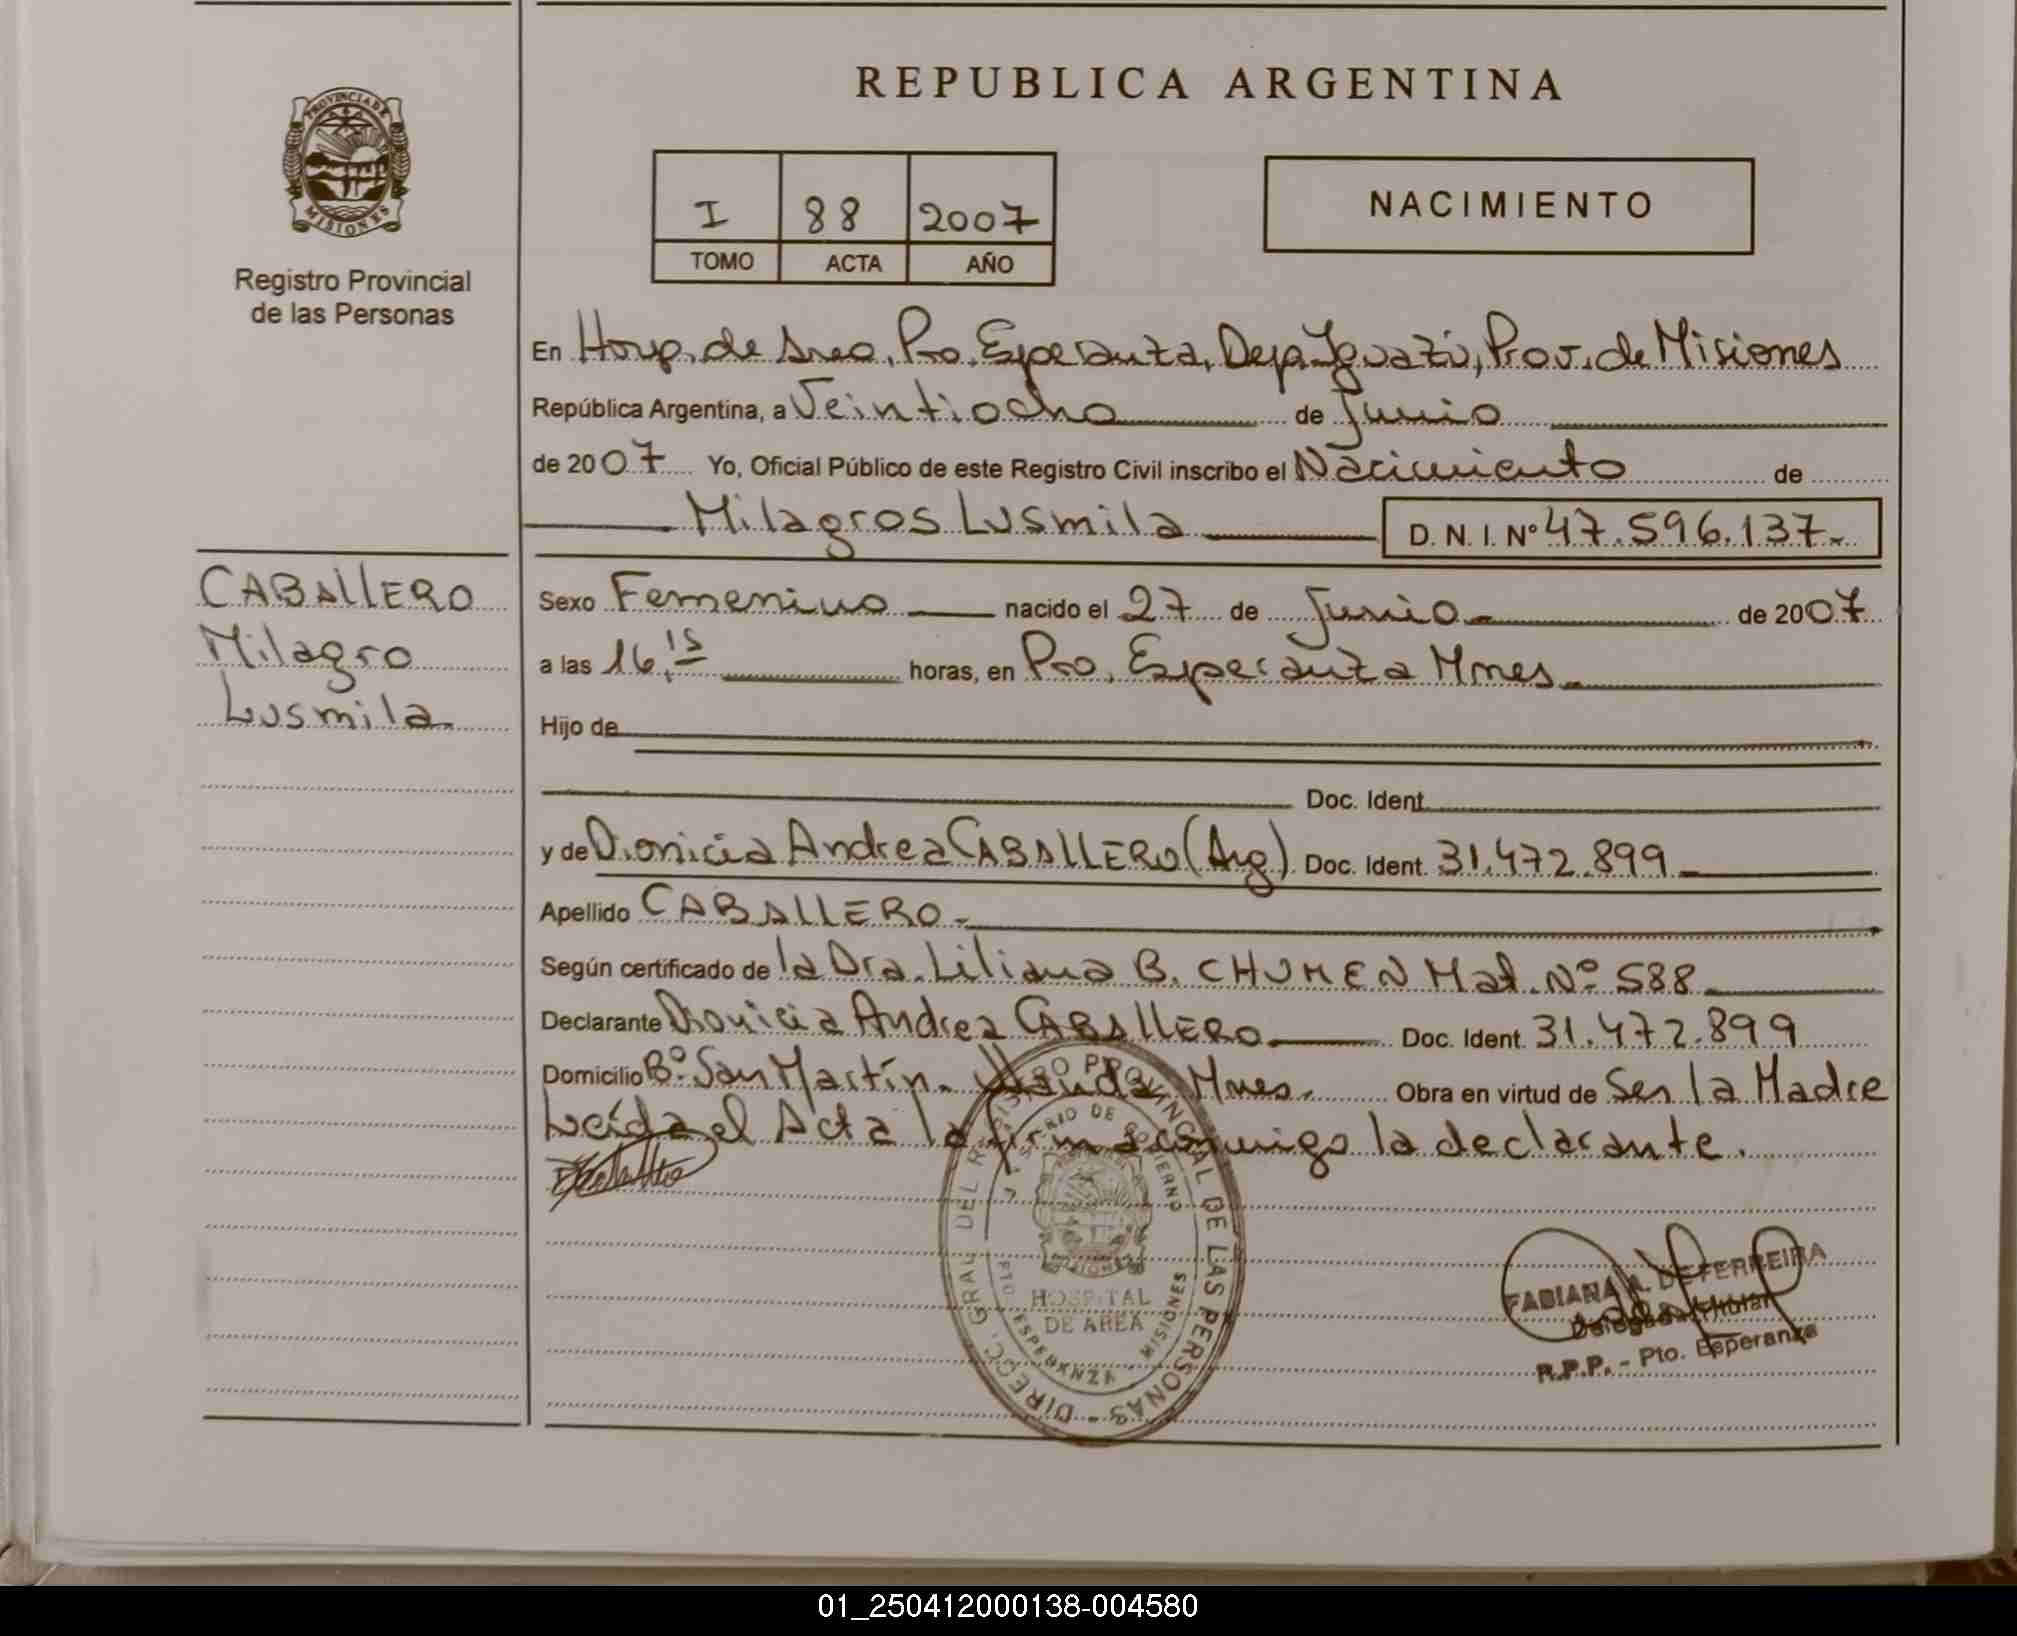 REPUBLICA ARGENTINA
PROVINCIA DE
MISIONES
Registro Provincial
de las Personas
I 88 2007
TOMO ACTA AÑO
NACIMIENTO
En Hosp. de Area, Pto. Esperanza, Dep. Iguazú, Prov. de Misiones
República Argentina, a Veintiocho de Junio
de 2007 Yo, Oficial Público de este Registro Civil inscribo el Nacimiento de
Milagros Lusmila D. N. I. Nº 47.596.137.-
CABALLERO
Milagro
Lusmila.
Sexo Femenino nacido el 27 de Junio.- de 2007
a las 16.15 horas, en Pto. Esperanza Mnes.-
Hijo de
Doc. Ident.
y de Dionicia Andrea CABALLERO (Arg) Doc. Ident. 31.472.899.-
Apellido CABALLERO.-
Según certificado de la Dra. Liliana B. CHUMEN Mat. Nº 588
Declarante Dionicia Andrea CABALLERO Doc. Ident. 31.472.899
Domicilio Bº San Martín. Wanda Mnes. Obra en virtud de Ser la Madre
Leída el Acta la firma conmigo la declarante.
DIRECC. GRAL DEL REGISTRO PROVINCIAL DE LAS PERSONAS -
MINISTERIO DE GOBIERNO
MISIONES
HOSPITAL
DE AREA
PTO ESPERANZA - MISIONES
FABIANA A. DE FERREIRA
Delegada Titular
R.P.P. - Pto. Esperanza
01_250412000138-004580